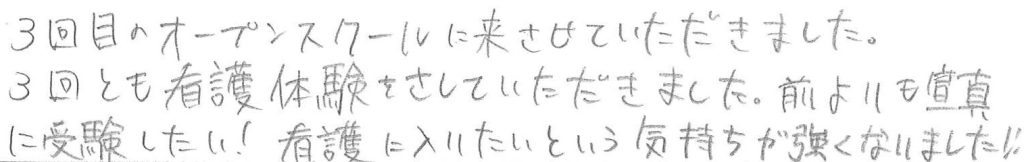 3回目のオープンスクールに来させていただきました。
3回とも看護体験をさしていただきました。前よりも宣真
に受験したい!看護に入りたいという気持ちが強くなりました!!